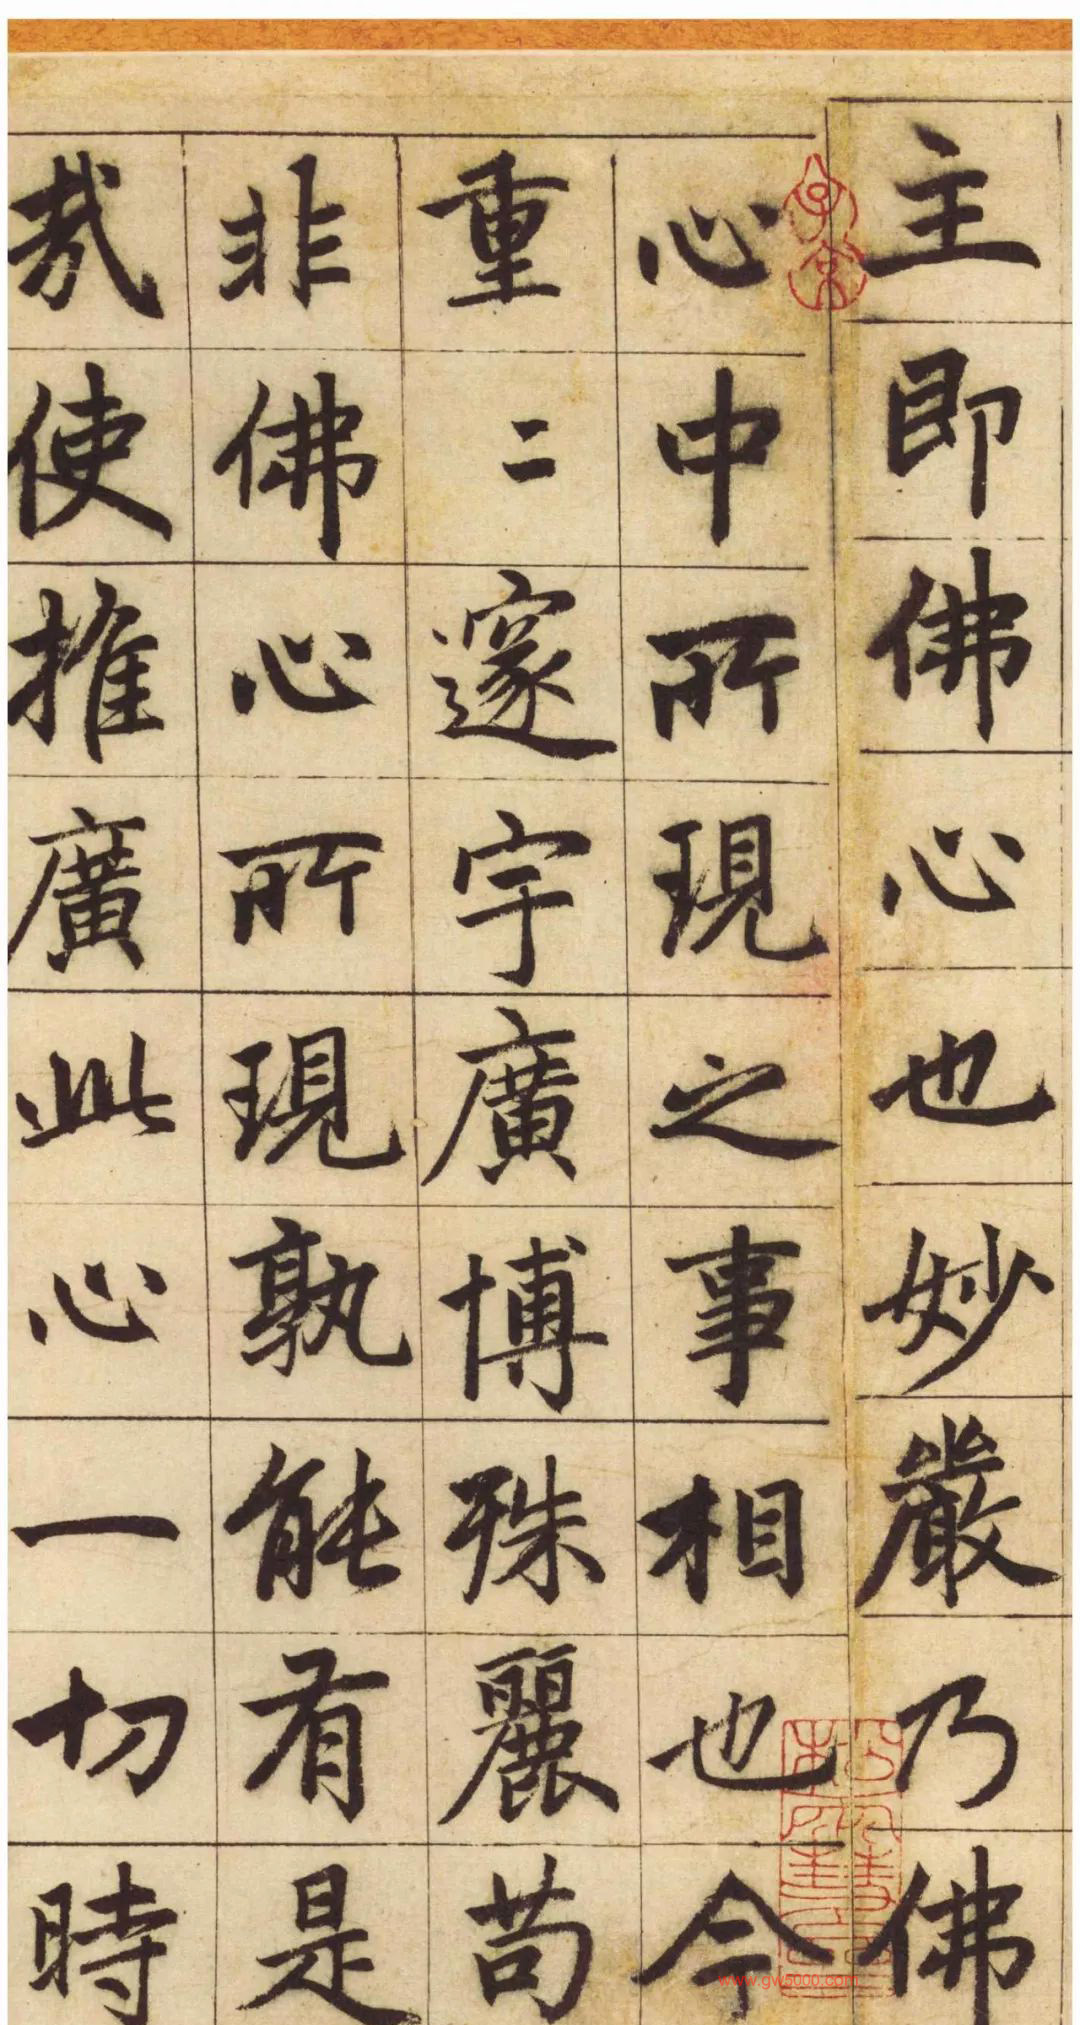 主即佛心也妙嚴乃佛
心中所現之事相也今
重二邃宇廣博殊麗苟
非佛心所現孰能有是
哉使推廣此心一切時
www.gw5000.com